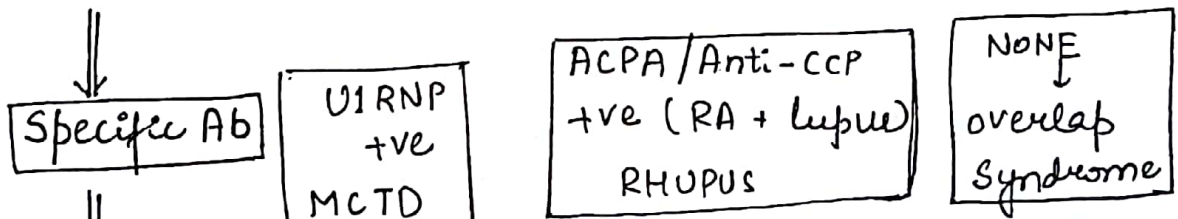 Specific Ab
U1RNP
+ve
MCTD
ACPA/Anti-CCP
+ve (RA + lupus)
RHUPUS
NONE
overlap
Syndrome